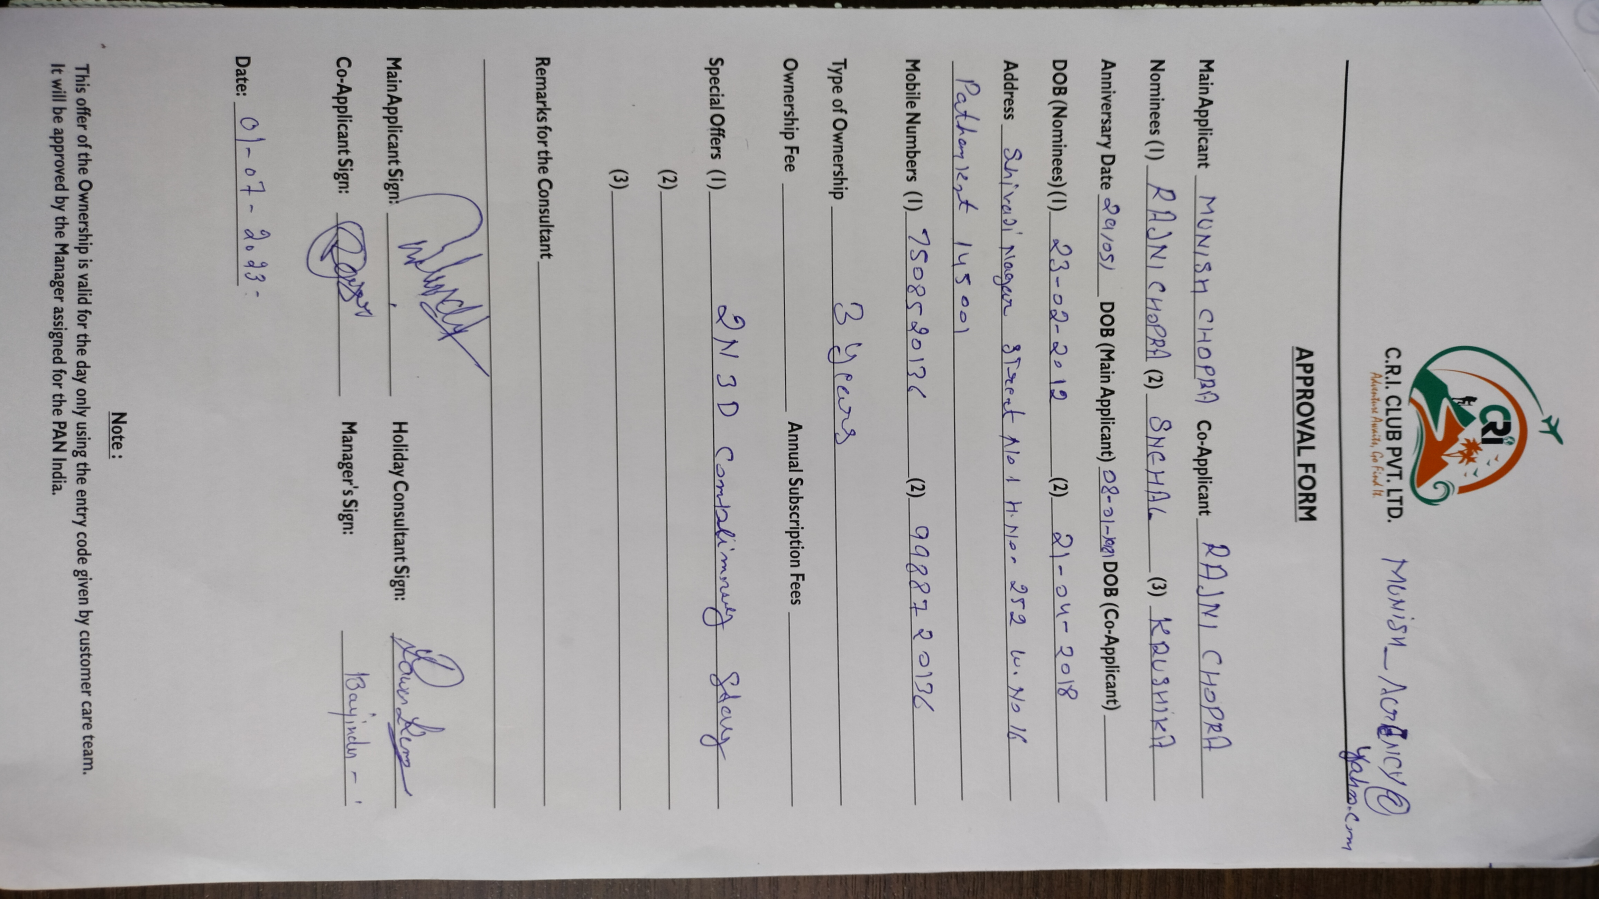 CRI
C.R.I. CLUB PVT. LTD.
Adventure Awaits, Go Find It.
yahoo.com
APPROVAL FORM
Main Applicant MUNISH CHOPRA Co-Applicant RAJNI CHOPRA
Nominees (1) RAJNI CHOPRA (2) SNEHAL (3) KRUSHIKA
Anniversary Date 29/05/ DOB (Main Applicant) 08-01-1981 DOB (Co-Applicant)
DOB (Nominees) (1) 23-02-2012 (2) 21-04-2018
Address Shivaji Nagar Street No 1 H.No. 252 W. No 16
Pathankot 145001
Mobile Numbers (1) 7508520136 (2) 9988720136
Type of Ownership 3 years
Ownership Fee Annual Subscription Fees
Special Offers (1) 2N 3D Complimnary Stay
(2)
(3)
Remarks for the Consultant
Main Applicant Sign: Holiday Consultant Sign:
Co-Applicant Sign: Manager's Sign:
Date: 01-07-2023-
Note :
This offer of the Ownership is valid for the day only using the entry code given by customer care team.
It will be approved by the Manager assigned for the PAN India.